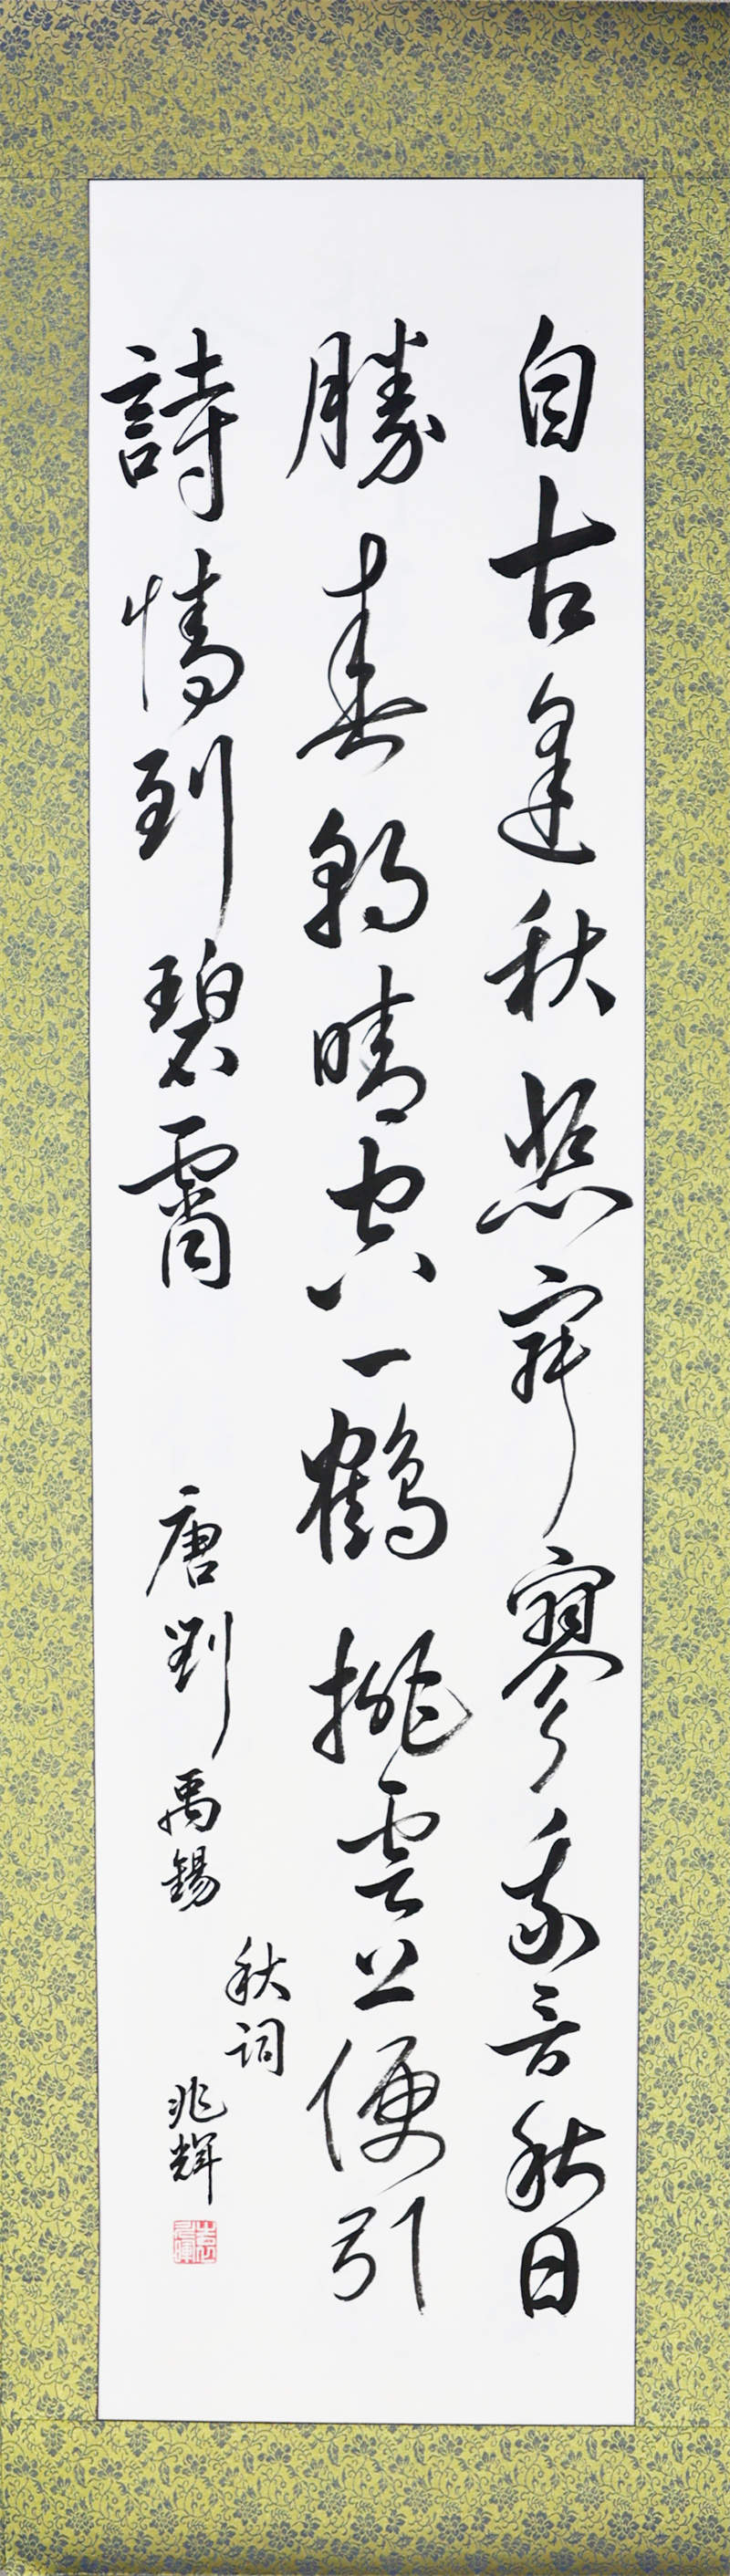 自古逢秋悲寂寥我言秋日
勝春朝晴空一鶴排雲上便引
詩情到碧霄
唐劉禹錫
秋詞
兆輝